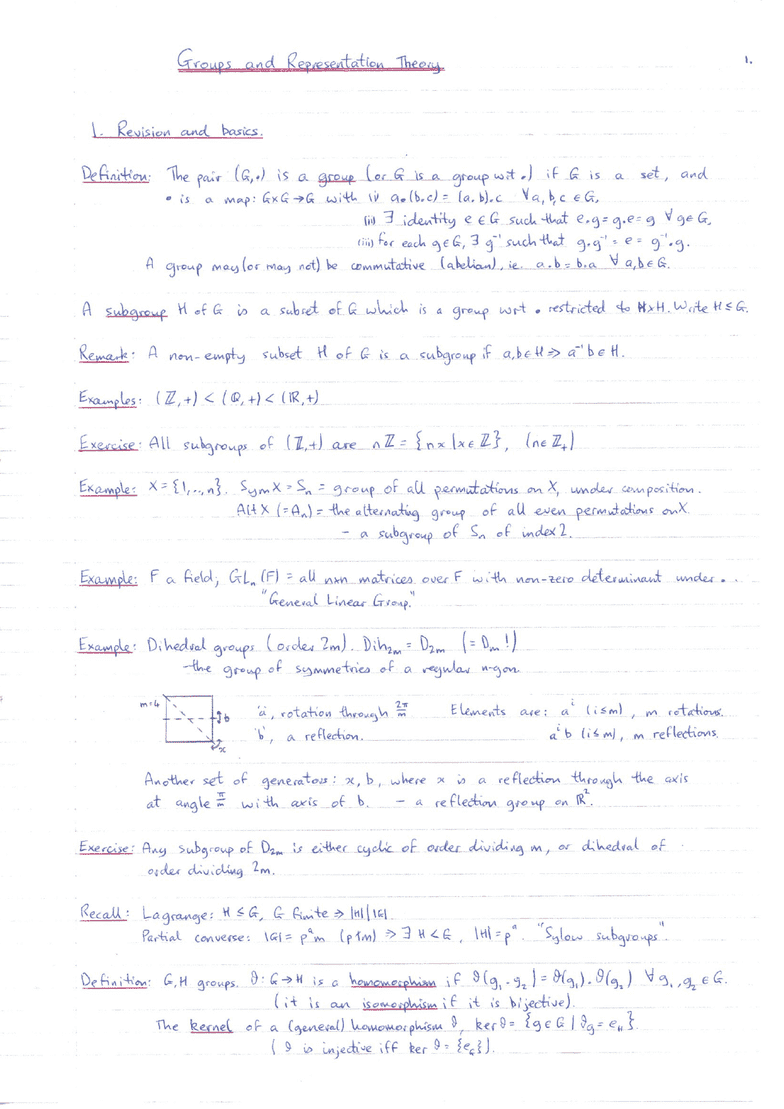 Groups and Representation Theory
1.
1. Revision and basics.
Definition: The pair (G,•) is a group (or G is a group wrt •) if G is a set, and
• is a map: G×G→G with (i) a•(b•c) = (a•b)•c ∀a,b,c ∈G,
(ii) ∃ identity e∈G such that e•g = g•e = g ∀ g∈G,
(iii) for each g∈G, ∃ g⁻¹ such that g•g⁻¹ = e = g⁻¹•g.
A group may (or may not) be commutative (abelian), ie. a•b = b•a ∀ a,b∈G.
A subgroup H of G is a subset of G which is a group wrt • restricted to H×H. Write H≤G.
Remark: A non-empty subset H of G is a subgroup if a,b∈H ⇒ a⁻¹b∈H.
Examples: (ℤ,+) < (ℚ,+) < (ℝ,+)
Exercise: All subgroups of (ℤ,+) are nℤ = {nx | x∈ℤ}, (n∈ℤ₊)
Example: X = {1,..,n}. Sym X = Sₙ = group of all permutations on X, under composition.
Alt X (=Aₙ) = the alternating group of all even permutations on X.
– a subgroup of Sₙ of index 2.
Example: F a field; GLₙ(F) = all n×n matrices over F with non-zero determinant under • .
"General Linear Group."
Example: Dihedral groups (order 2m). Dih₂ₘ = D₂ₘ (= Dₘ!)
– the group of symmetries of a regular n-gon.
m=4
b
x
'a', rotation through 2π/m Elements are: aⁱ (i≤m), m rotations.
'b', a reflection. aⁱb (i≤m), m reflections.
Another set of generators: x, b, where x is a reflection through the axis
at angle π/m with axis of b. – a reflection group on ℝ².
Exercise: Any subgroup of D₂ₘ is either cyclic of order dividing m, or dihedral of
order dividing 2m.
Recall: Lagrange: H ≤ G, G finite ⇒ |H| | |G|.
Partial converse: |G| = pᵃm (p∤m) ⇒ ∃ H<G, |H| = pᵃ. "Sylow subgroups".
Definition: G,H groups. ϑ: G→H is a homomorphism if ϑ(g₁•g₂) = ϑ(g₁)•ϑ(g₂) ∀ g₁,g₂ ∈ G.
(it is an isomorphism if it is bijective).
The kernel of a (general) homomorphism ϑ, ker ϑ = {g∈G | ϑg = e_H}.
( ϑ is injective iff ker ϑ = {e_G}).